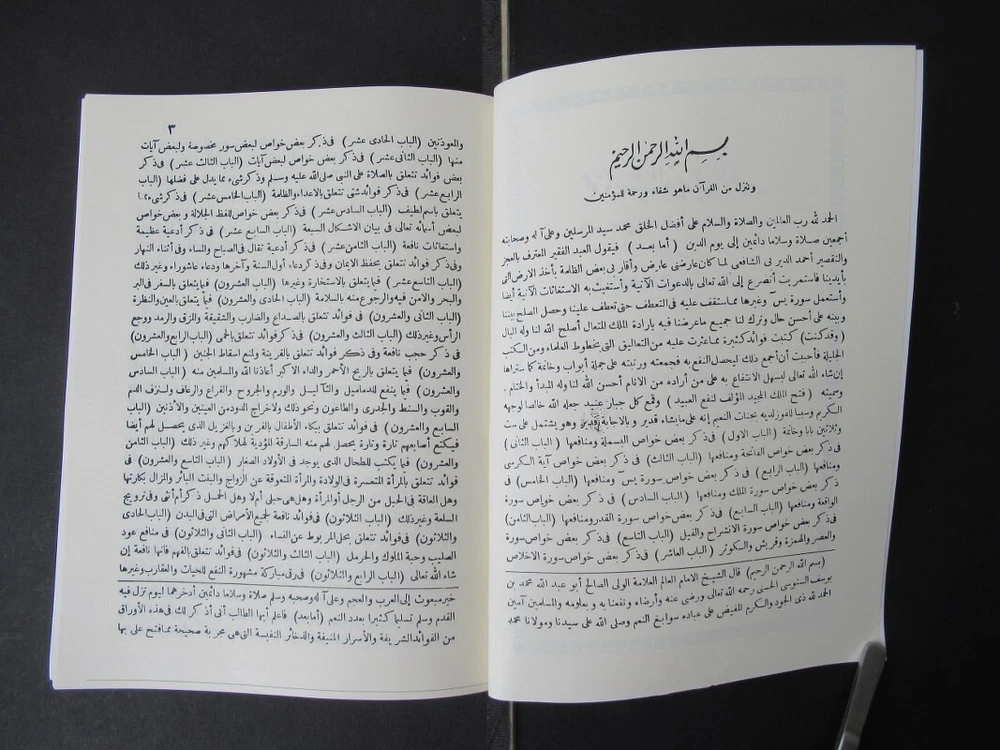 بسم الله الرحمن الرحيم
وننزل من القرآن ماهو شفاء ورحمة للمؤمنين
الحمد لله رب العالمين والصلاة والسلام على أفضل الخلق محمد سيد المرسلين وعلى آله وصحابته
أجمعين صلاة وسلاما دائمين إلى يوم الدين (أما بعد) فيقول العبد الفقير المعترف بالعجز
والتقصير أحمد الديربى الشافعى لما كان عارضنى عارض وأقاربى بعض الظلمة بأخذ الارض التى
بأيدينا فاستمريت أتضرع إلى الله تعالى بالدعوات الآتية وأستغيث به الاستغاثات الآتية أيضا
وأستعمل سورة يس وغيرها مما ستقف عليه فى التعطف حتى تعطف علينا وحصل الصلح بيننا
وبينه على أحسن حال وترك لنا جميع ماعرضنا فيه بارادة الملك المتعال أصلح الله لنا وله البال
(وقد كنت) كتبت فوائد كثيرة مما عثرت عليه من التعاليق التى بخطوط العلماء ومن الكتب
الجليلة فأحببت أن أجمع ذلك ليحصل النفع به فجمعته ورتبته على جملة أبواب وخاتمة كما ستراها
إن شاء الله تعالى ليسهل الانتفاع به على من أراده من الانام أحسن الله لنا وله المبدأ والختام .
وسميته (فتح الملك المجيد المؤلف لنفع العبيد) وقمع كل جبار عنيد جعله الله خالصا لوجهه
الكريم وسببا للفوز لديه بجنات النعيم إنه على مايشاء قدير وبالاجابة جدير وهو يشتمل على ست
وثلاثين بابا وخاتمة (الباب الاول) فى ذكر بعض خواص البسملة ومنافعها (الباب الثانى)
فى ذكر بعض خواص الفاتحة ومنافعها (الباب الثالث) فى ذكر بعض خواص آية الكرسى
ومنافعها (الباب الرابع) فى ذكر بعض خواص سورة يس ومنافعها (الباب الخامس) فى
ذكر بعض خواص سورة الملك ومنافعها (الباب السادس) فى ذكر بعض خواص سورة
الواقعة ومنافعها (الباب السابع) فى ذكر بعض خواص سورة القدر ومنافعها (الباب الثامن)
فى ذكر بعض خواص سورة الانشراح والفيل (الباب التاسع) فى ذكر بعض خواص سورة
والعصر والهمزة وقريش والكوثر (الباب العاشر) فى ذكر بعض خواص سورة الاخلاص
(بسم الله الرحمن الرحيم) قال الشيخ الامام العالم العلامة الولى الصالح أبو عبد الله محمد بن
يوسف السنوسى الحسنى رحمه الله تعالى ورضى عنه وأرضاه ونفعنا به وبعلومه والمسلمين آمين
الحمد لله ذى الجود والكرم المفيض على عباده سوابغ النعم وصلى الله على سيدنا ومولانا محمد
٣
والمعوذتين (الباب الحادى عشر) فى ذكر بعض خواص لبعض سور مخصوصة ولبعض آيات
منها (الباب الثانى عشر) فى ذكر بعض خواص لبعض آيات (الباب الثالث عشر) فى ذكر
بعض فوائد تتعلق بالصلاة على النبى صلى الله عليه وسلم وذكر شىء مما يدل على فضلها (الباب
الرابع عشر) فى ذكر فوائد شتى تتعلق بالاعداء والظلمة (الباب الخامس عشر) فى ذكر شىء مما
يتعلق باسم لطيف (الباب السادس عشر) فى ذكر بعض خواص للفظ الجلالة وبعض خواص
لبعض أسمائه تعالى فى بيان الاشكال السبعة (الباب السابع عشر) فى ذكر أدعية عظيمة
واستغاثات نافعة (الباب الثامن عشر) فى ذكر أدعية تقال فى الصباح والمساء وفى أثناء النهار
وفى ذكر فوائد تتعلق بحفظ الايمان وفى ذكر دعاء أول السنة وآخرها ودعاء عاشوراء وغير ذلك
(الباب التاسع عشر) فيما يتعلق بالاستخارة وغيرها (الباب العشرون) فيما يتعلق بالسفر فى البر
والبحر والامن فيه والرجوع منه بالسلامة (الباب الحادى والعشرون) فيما يتعلق بالعين والنظرة
(الباب الثانى والعشرون) فى فوائد تتعلق بالصداع والضارب والشقيقة والمزق والرمد ووجع
الرأس وغير ذلك (الباب الثالث والعشرون) فى ذكر فوائد تتعلق بالحمى (الباب الرابع والعشرون)
فى ذكر حجب نافعة وفى ذكر فوائد تتعلق بالقرينة ولمنع اسقاط الجنين (الباب الخامس
والعشرون) فيما يتعلق بالريح الأحمر والداء الاكبر أعاذنا الله والمسلمين منه (الباب السادس
والعشرون) فيما ينفع للدماميل والتآليل والورم والجروح والفراغ والرعاف ولنزف الدم
والقوب والسنط والجدرى والطاعون ونحو ذلك ولاخراج الدود من العينين والاذنين (الباب
السابع والعشرون) فى فوائد تتعلق ببكاء الأطفال بالقرين وبالغزيل الذى يحصل لهم أيضا
فيكنع أصابعهم تارة وتارة يحصل لهم منه السارقة المؤدية لهلاكهم وغير ذلك (الباب الثامن
والعشرون) فيما يكتب للطحال الذى يوجد فى الأولاد الصغار (الباب التاسع والعشرون) فى
فوائد تتعلق بالمرأة المتعسرة فى الولادة والمرأة المتعوقة عن الزواج والبنت البائر والمزال بكارتها
وهل العاقة فى الحبل من الرجل أو المرأة وهل هى حبلى أم لا وهل الحمل ذكر أم أنثى وفى ترويج
السلعة وغير ذلك (الباب الثلاثون) فى فوائد نافعة لجميع الأمراض التى فى البدن (الباب الحادى
والثلاثون) فى فوائد تتعلق بحل المربوط عن النساء (الباب الثانى والثلاثون) فى منافع عود
الصليب وحبة الملوك والحرمل (الباب الثالث والثلاثون) فى فوائد تتعلق بالفهم فانها نافعة إن
شاء الله تعالى (الباب الرابع والثلاثون) فى رقى مباركة مشهورة النفع للحيات والعقارب وغيرها
خير مبعوث إلى العرب والعجم وعلى آله وصحبه وسلم صلاة وسلاما دائمين أدخرهما ليوم تزل فيه
القدم وسلم تسليما كثيرا بعدد النعم (أما بعد) فاعلم أيها الطالب أنى أذكر لك فى هذه الأوراق
من الفوائد الشريفة والأسرار المنيفة والدخائر النفيسة التى هى مجربة صحيحة مما فتح على بها